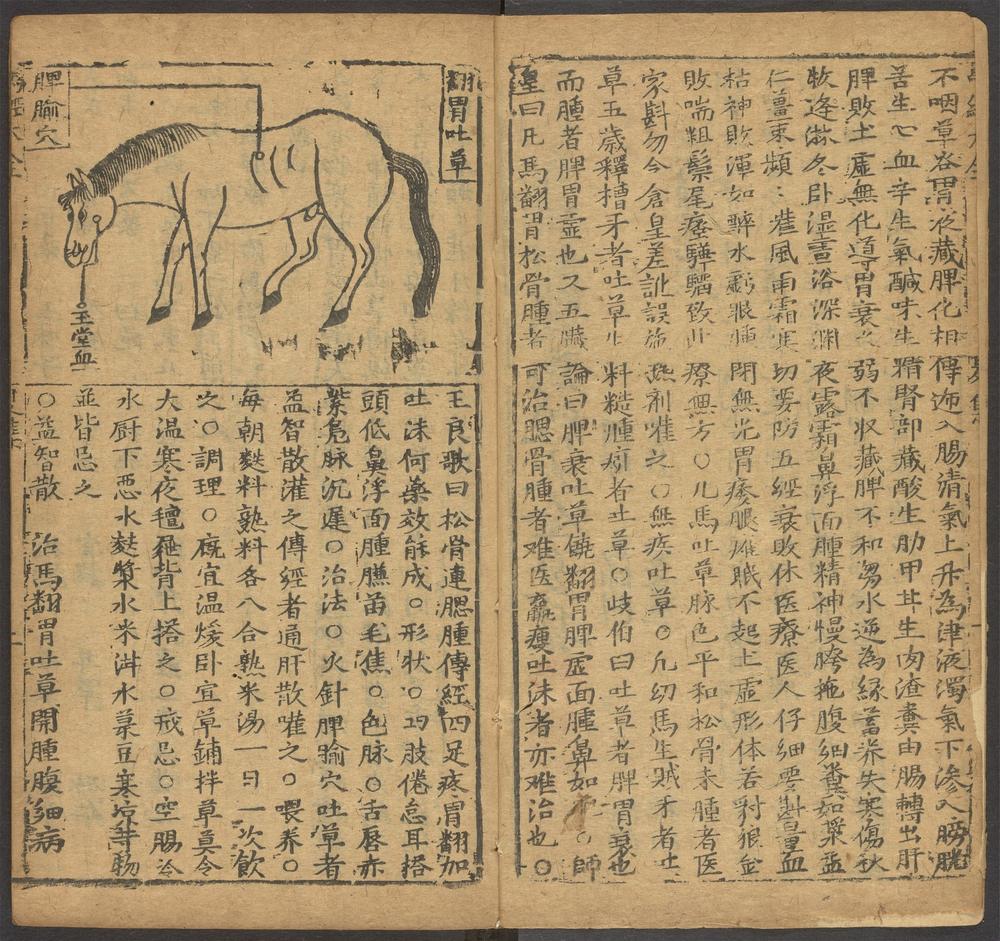 不咽草谷胃 藏脾化相傳迊入腸清氣上升為津液濁氣下滲入膀胱
苦生心血辛生氣鹹味生精腎部藏酸生肋甲甘生肉渣糞由腸轉出肝
脾敗土虛無化道胃衰 弱不收藏脾不和芻水逆為緣蓄养失寒傷秋
牧逄 冬卧湿 浴深渊夜露霜鼻浮面腫精神慢胯拖腹細糞如
仁薑棗 風雨霜寒切要防五經衰敗休医療医人仔細要斟量血
枯神敗渾如醉水虧眼 閉無光胃痿腿 眠不起土虛形体若豺狼
敗喘粗鬃尾 療無方○凡馬吐草脉色平和松骨未腫者医
家斟 勿令倉皇差訛誤施 剤嚾之○無疾吐草○凡幼馬生贼牙者吐
草五歲釋槽牙者吐草生料糙腫 者吐草○歧伯曰吐草者脾胃衰也
而腫者脾胃虛也又五臓論曰脾衰吐草 翻胃脾虚面腫鼻如 ○師
皇曰凡馬翻胃松骨腫者可治腮骨腫者难医羸瘦吐沫者亦难治也○
翻胃吐草
脾腧穴
玉堂血
王良歌曰松骨連腮腫傳經四足疼胃翻加
吐沫何藥效能成○形状○四肢倦怠耳搭
頭低鼻浮面腫臕 毛焦○色脉○舌唇赤
紫 脉沉遲○治法○火針脾腧穴吐草者
益智散灌之傳經者通肝散嚾之○喂养○
每朝麩料熟料各八合熟米湯一日一次飲
之○調理○廐宜温煖卧宜草鋪拌草莫令
大温寒夜氊 背上搭之○戒忌○空腸冷
水厨下恶水麩漿水米泔水菉豆寒凉等物
並皆忌之
○益智散 治馬翻胃吐草開腫腹細病